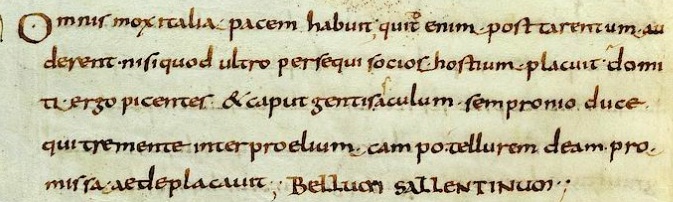 Omnis mox italia pacem habuit quit enim post tarentum au
derent · nisi quod ultro persequi socios hostium placuit domi
ti ergo picentes & caput gentis aculum · sempronio duce
qui tremente inter proelium campo tellurem deam pro
missa aede placavit ; BELLUM SALLENTINUM ;